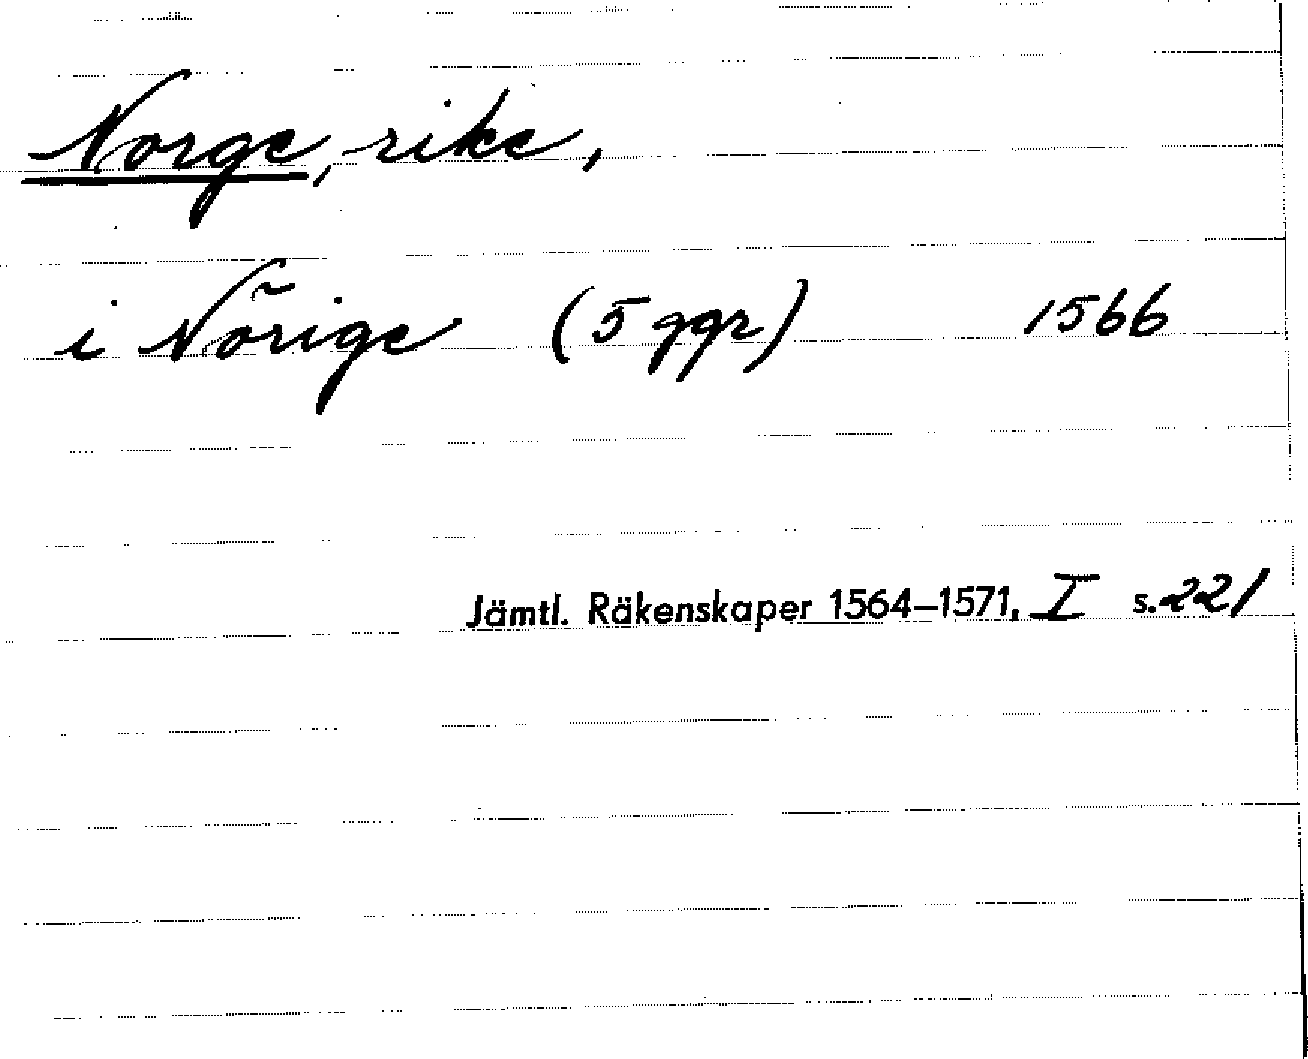 Norge, rike,
i Nõrige (5 ggr) 1566
Jämtl. Räkenskaper 1564–1571, I s. 221